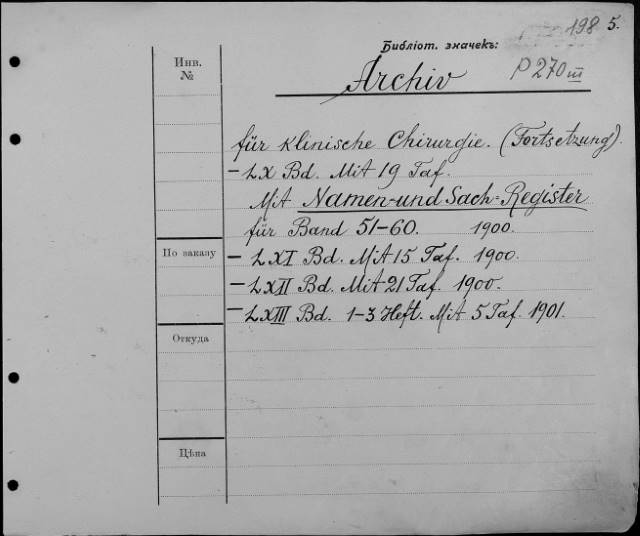 198 5.
Библіот. значекъ:
Инв.
№
Archiv
P 270 III
für klinische Chirurgie. (Fortsetzung).
– LX Bd. Mit 19 Taf.
Mit Namen- und Sach-Register
für Band 51–60. 1900.
По заказу
– LXI Bd. Mit 15 Taf. 1900.
– LXII Bd. Mit 21 Taf. 1900.
– LXIII Bd. 1–3 Heft. Mit 5 Taf. 1901.
Откуда
Цѣна